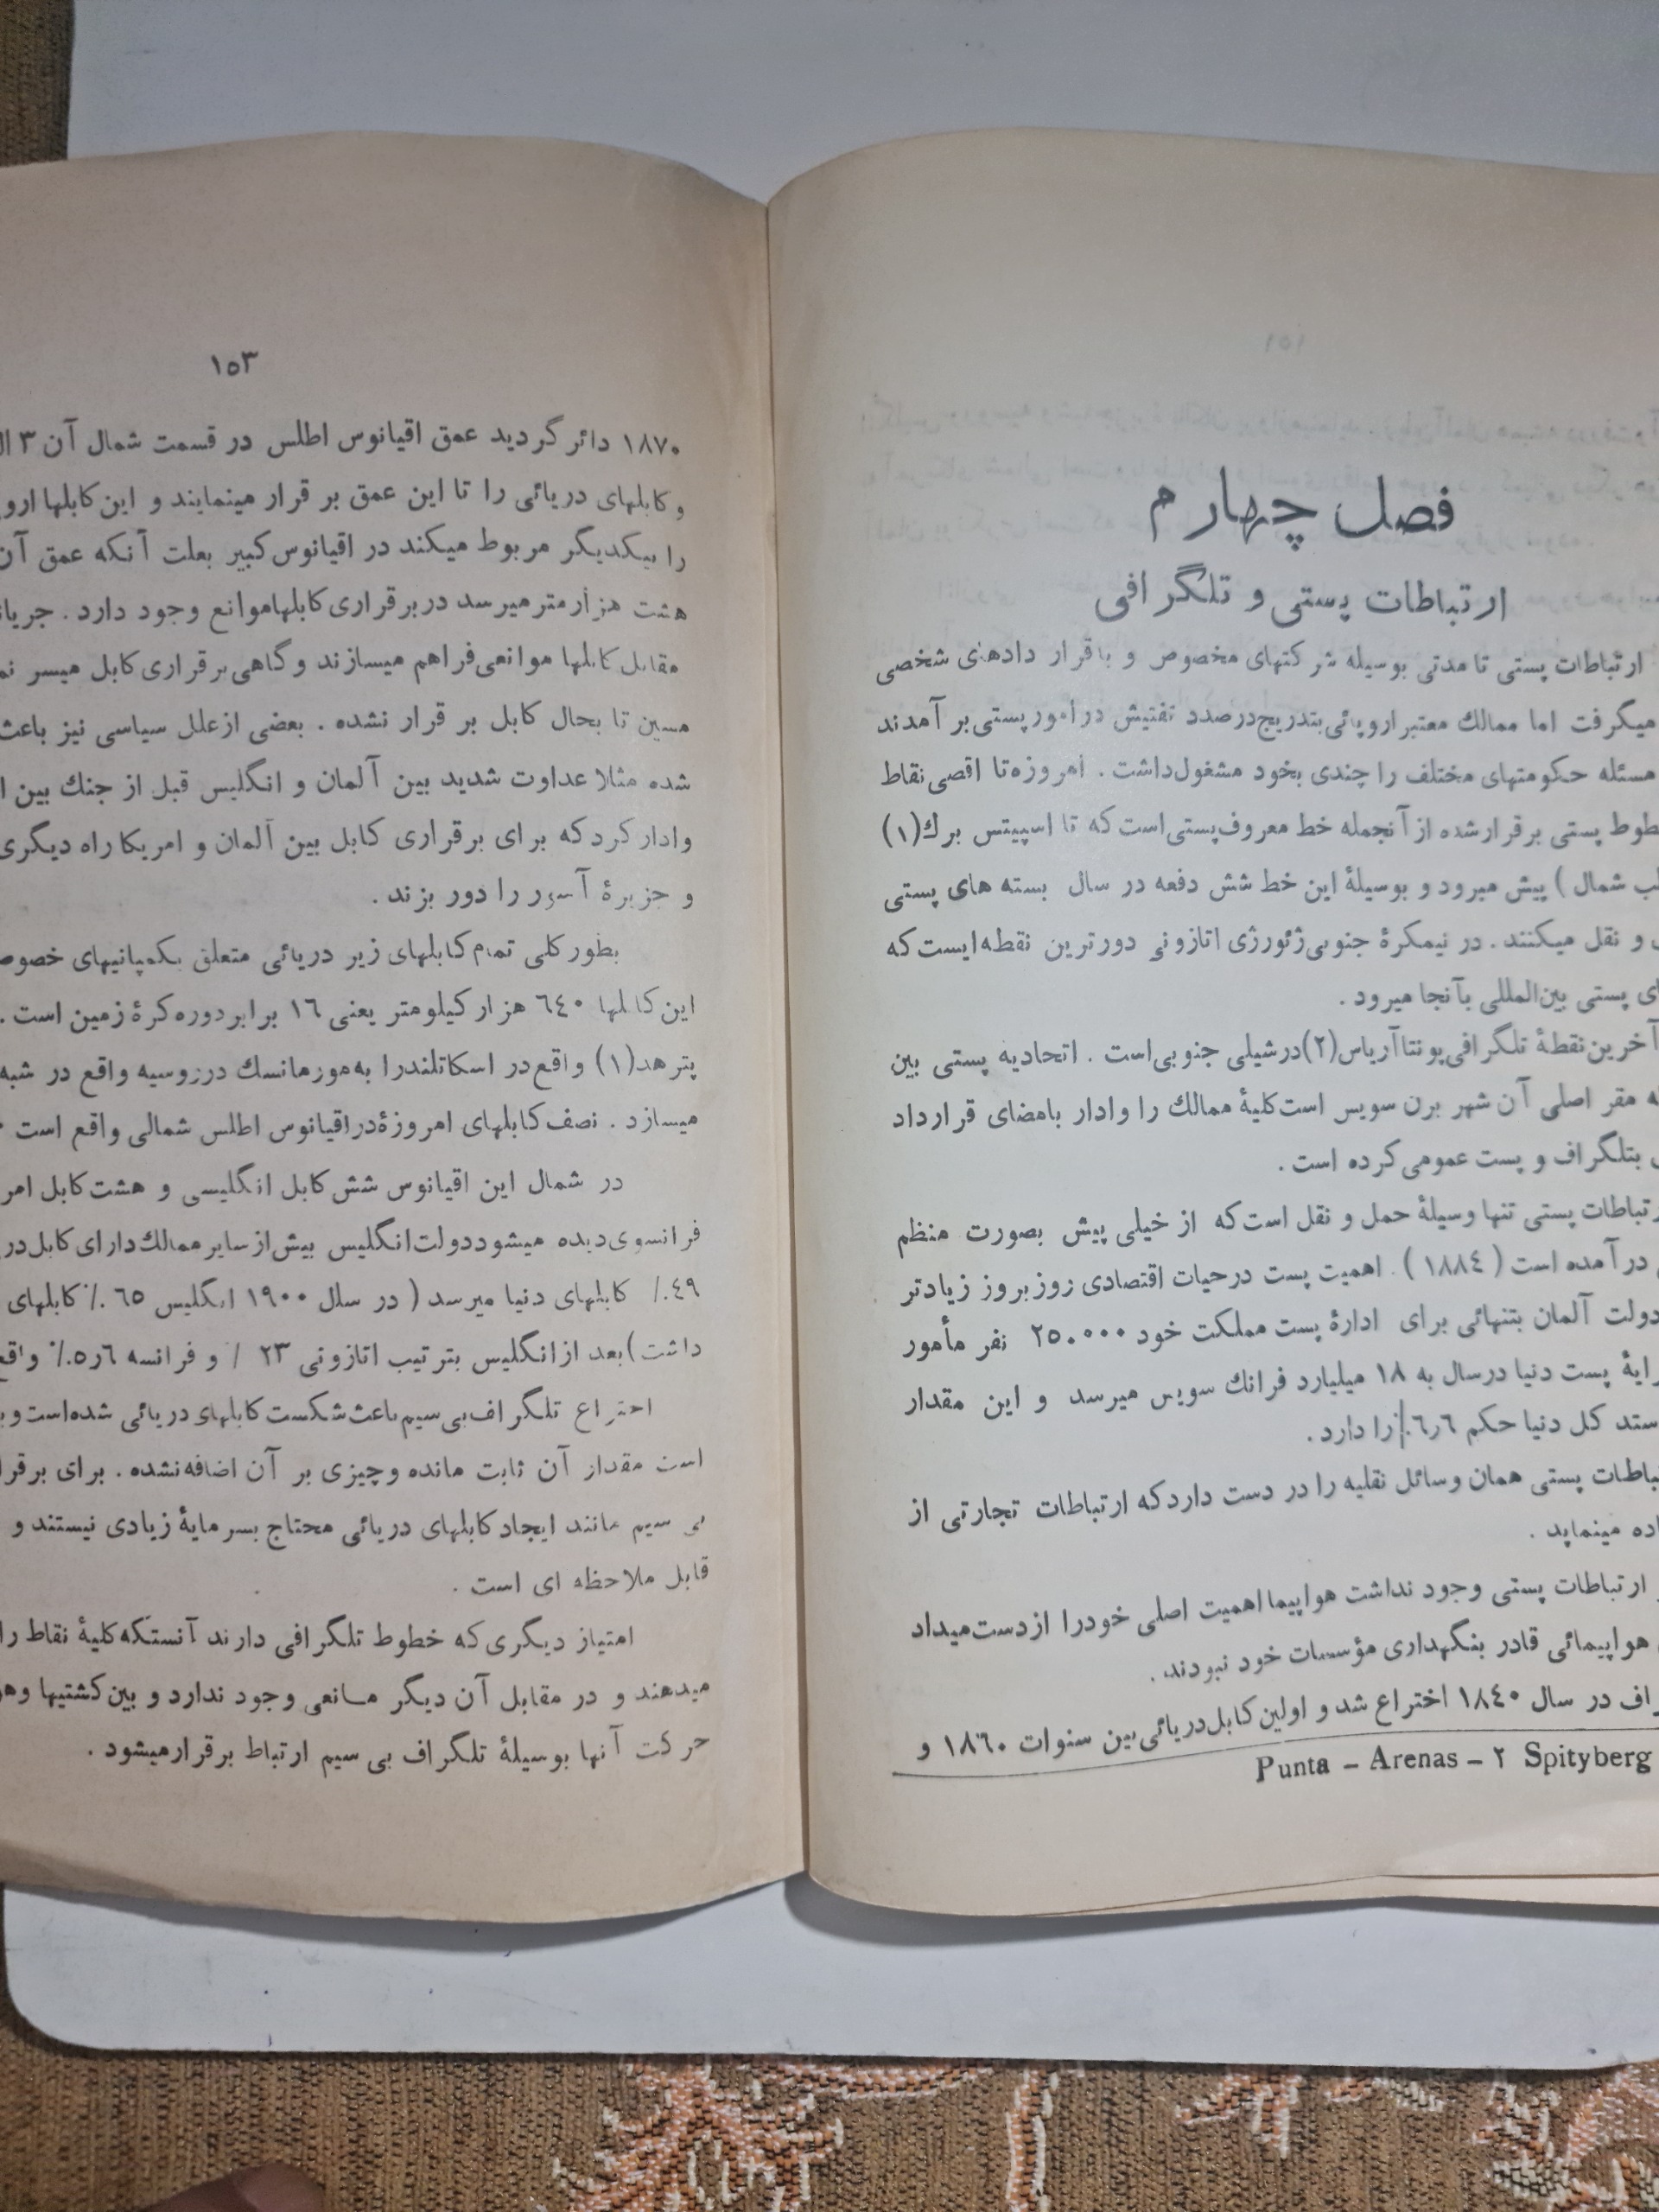 فصل چهارم
ارتباطات پستی و تلگرافی
ارتباطات پستی تا مدتی بوسیله شرکتهای مخصوص و با قرار دادهای شخصی
میگرفت اما ممالك معتبر اروپائی بتدریج درصدد تفتیش در امور پستی بر آمدند
مسئله حکومتهای مختلف را چندی بخود مشغول داشت . امروزه تا اقصی نقاط
پستی برقرار شده از آنجمله خط معروف پستی است که تا اسپیتس برك (۱)
شمال ) پیش میرود و بوسیلهٔ این خط شش دفعه در سال بسته های پستی
و نقل میکنند . در نیمکرهٔ جنوبی ژئورژی اتازونی دورترین نقطه ایست که
پستی بین‌المللی بآنجا میرود .
آخرین نقطهٔ تلگرافی پونتاآریاس (۲) در شیلی جنوبی است . اتحادیه پستی بین
مقر اصلی آن شهر برن سویس است کلیهٔ ممالك را وادار بامضای قرارداد
بتلگراف و پست عمومی کرده است .
پستی تنها وسیلهٔ حمل و نقل است که از خیلی پیش بصورت منظم
در آمده است ( ۱۸۸٤ ) . اهمیت پست در حیات اقتصادی روز بروز زیادتر
دولت آلمان بتنهائی برای ادارهٔ پست مملکت خود ۲٥۰۰۰۰ نفر مأمور
پست دنیا در سال به ۱۸ میلیارد فرانك سویس میرسد و این مقدار
کل دنیا حکم ٦٫٦٪ را دارد .
پستی همان وسائل نقلیه را در دست دارد که ارتباطات تجارتی از
مینماید .
ارتباطات پستی وجود نداشت هواپیما اهمیت اصلی خود را از دست میداد
هواپیمائی قادر بنگهداری مؤسسات خود نبودند .
در سال ۱۸٤۰ اختراع شد و اولین کابل دریائی بین سنوات ۱۸٦۰ و
Punta – Arenas – ۲ Spityberg
۱٥۳
۱۸۷۰ دائر گردید عمق اقیانوس اطلس در قسمت شمال آن ۳
و کابلهای دریائی را تا این عمق بر قرار مینمایند و این کابلها
را بیکدیگر مربوط میکند در اقیانوس کبیر بعلت آنکه عمق آن
هشت هزار متر میرسد در برقراری کابلها موانع وجود دارد .
مقابل کابلها موانعی فراهم میسازند و گاهی برقراری کابل میسر
تا بحال کابل بر قرار نشده . بعضی از علل سیاسی نیز باعث
شده مثلا عداوت شدید بین آلمان و انگلیس قبل از جنك بین
وادار کرد که برای برقراری کابل بین آلمان و امریکا راه دیگری
و جزیرهٔ آسور را دور بزند .
بطور کلی تمام کابلهای زیر دریائی متعلق بکمپانیهای
این کابلها ٦٤۰ هزار کیلومتر یعنی ۱٦ برابر دوره کرهٔ زمین است .
پترهد (۱) واقع در اسکاتلند را به مورمانسك در روسیه واقع در
میسازد . نصف کابلهای امروزهٔ در اقیانوس اطلس شمالی واقع است
در شمال این اقیانوس شش کابل انگلیسی و هشت کابل
فرانسوی دیده میشود دولت انگلیس بیش از سایر ممالك دارای کابل
٤۹٪ کابلهای دنیا میرسد ( در سال ۱۹۰۰ انگلیس ٦٥ ٪ کابلهای
داشت ) بعد از انگلیس بترتیب اتازونی ۲۳ ٪ و فرانسه ٦ر٥٪
احتراع تلگراف بی سیم باعث شکست کابلهای دریائی شده است
است مقدار آن ثابت مانده و چیزی بر آن اضافه نشده . برای
بی سیم مانند ایجاد کابلهای دریائی محتاج بسرمایهٔ زیادی نیستند و
قابل ملاحظه ای است .
امتیاز دیگری که خطوط تلگرافی دارند آنستکه کلیهٔ نقاط را
میدهند و در مقابل آن دیگر مانعی وجود ندارد و بین کشتیها
حرکت آنها بوسیلهٔ تلگراف بی سیم ارتباط برقرار میشود .